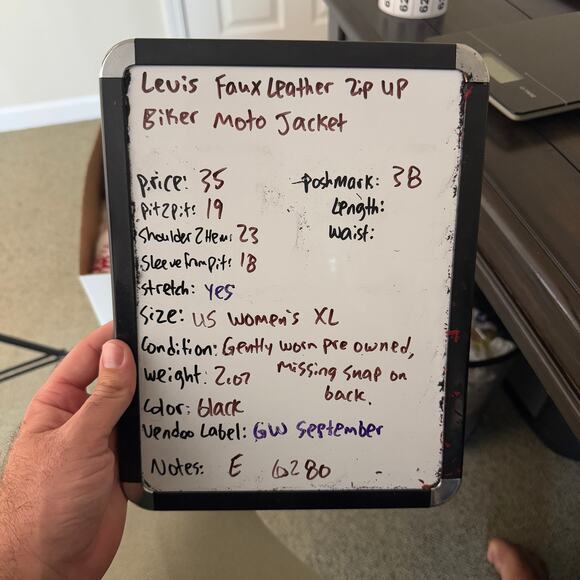 Levis Faux Leather Zip UP
Biker Moto Jacket
price: 35
poshmark: 38
pit2pit: 19
Length:
Shoulder2Hem: 23
Waist:
Sleeve From pit: 18
stretch: yes
Size: US Women's XL
Condition: Gently worn pre owned,
Missing snap on
back.
weight: 2.07
Color: black
Vendoo Label: GW September
Notes: E 6280